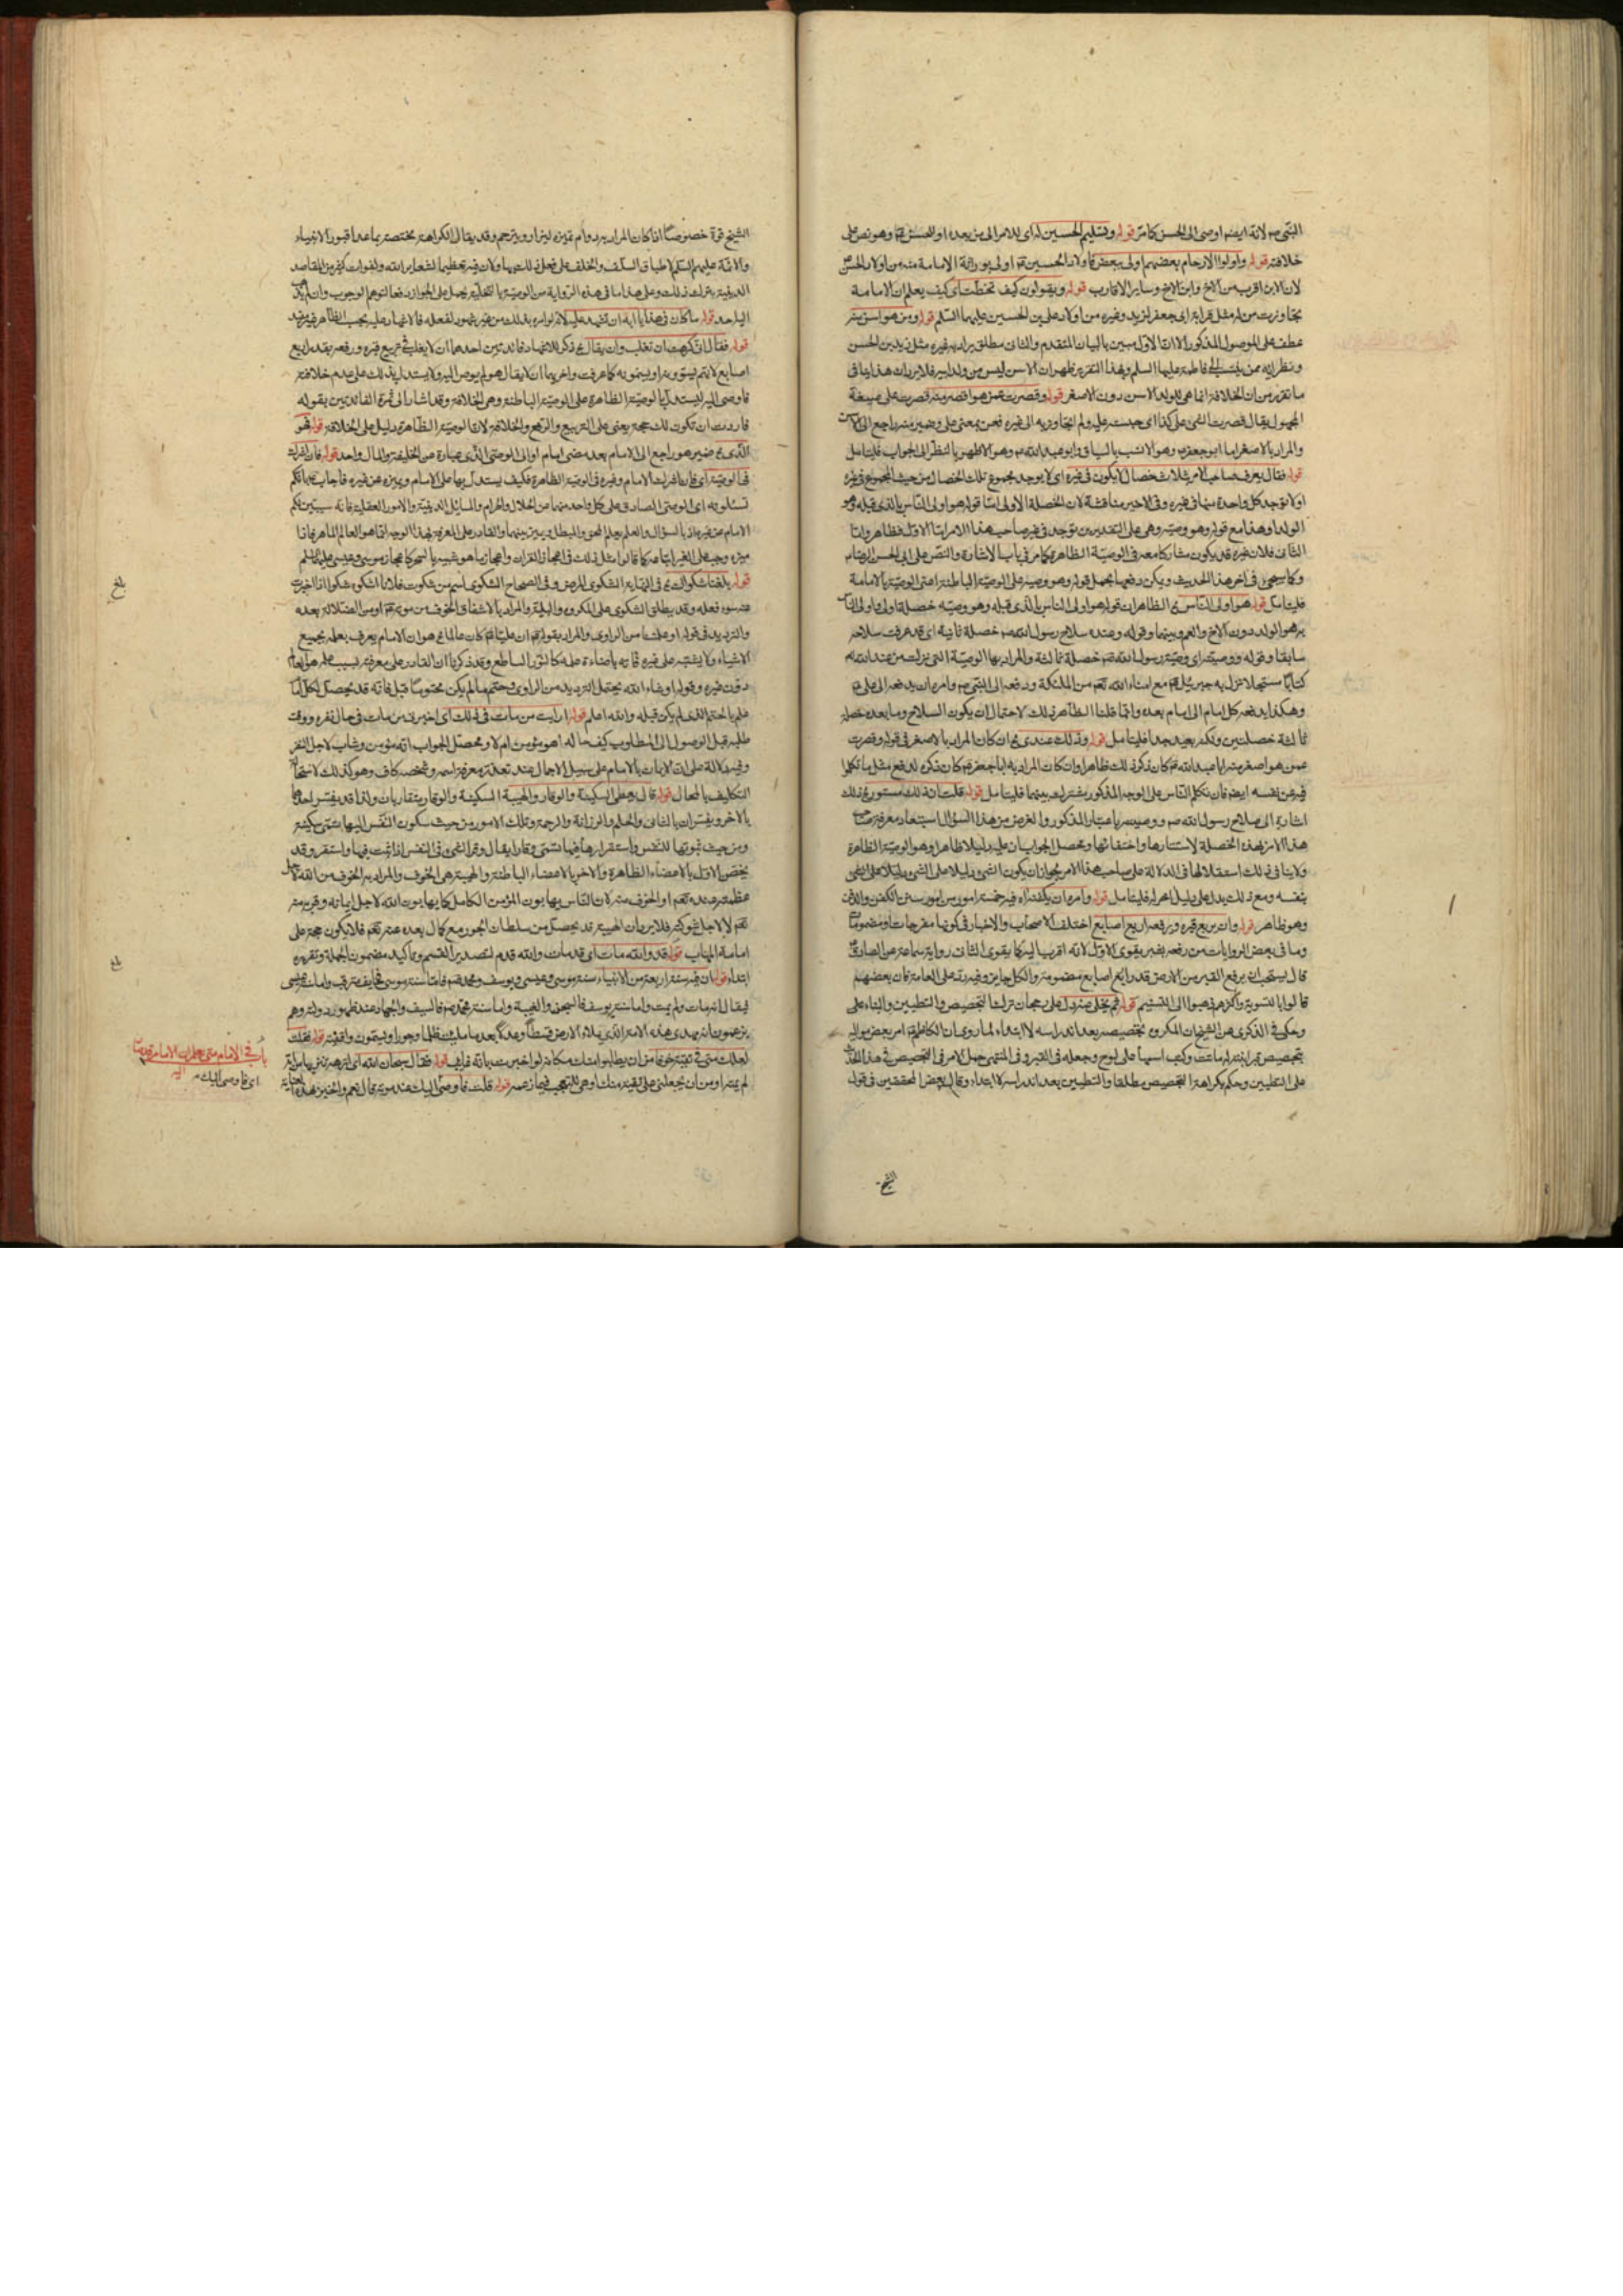 النبى ص لانه ايضا اوصى الى الحسن كما مر قوله وتسليم الحسين له اى للامر الى من بعده او للحسن وهو نص على
خلافته قوله واولوا الارحام بعضهم اولى ببعض فاولاد الحسين اولى بوراثة الامامة منه من اولاد الحسن
لان الابن اقرب من الاخ وابن الاخ وساير الاقارب قوله ويقولون كيف تخطت اى كيف يعلم ان الامامة
تجاوزت من له مثل قرابة ابى جعفر لزيد وغيره من اولاد على بن الحسين عليهما السلم قوله ومن هو اسن منه
عطف على الموصول المذكور الا ان الاول مبين بالبيان المتقدم والثانى مطلق يراد به غيره مثل زيد بن الحسن
ونظرائه ممن ينتسب الى فاطمة عليها السلم وبهذا التقرير ظهر ان الاسن ليس من ولد ابيه فلا يرد ان هذا ينافى
ما تقرر من ان الخلافة انما هى للولد الاسن دون الاصغر قوله وقصرت عمن هو اصغر منه قصرت على صيغة
المجهول يقال قصرت الشىء على كذا اى حبسته عليه ولم اتجاوز به الى غيره فعن بمعنى على وضمير منه راجع الى
والمراد بالاصغر اما ابو جعفر وهو الانسب بالسياق وابو عبد الله وهو الاظهر بالنظر الى الجواب فليتامل
قوله فقال يعرف صاحب الامر بثلاث خصال لا يكون فى غيره اى لا يوجد مجموع تلك الخصال من حيث المجموع فى غيره
او لا توجد كل واحدة منها فى غيره وفى الاخير مناقشة لان الخصلة الاولى اما قوله هو اولى الناس بالذى قبله وهو
الولد او هذا مع قوله وهو وصيه وهى على التقديرين توجد فى غير صاحب هذا الامر اما الاول فظاهر واما
الثانى فلان غيره قد يكون مشاركا معه فى الوصية الظاهرة كما مر فى باب الاشارة والنص على ابى الحسن الرضا
وكما سيجىء فى اخر هذا الحديث ويمكن دفعها بحمل قوله وهو وصيه على الوصية الباطنة اعنى الوصية بالامامة
فليتامل قوله هو اولى الناس الظاهر ان قوله هو اولى الناس بالذى قبله وهو وصيه خصلة اولى واولى الناس
به هو الولد دون الاخ والعم وبينهما وقوله وعنده سلاح رسول الله ص خصلة ثانية اى قد عرفت سلاحه
سابقا وقوله ووصيته اى وصية رسول الله ص خصلة ثالثة والمراد بها الوصية التى نزلت من عند الله
كتابا مسجلا نزل به جبرئيل مع امناء الله تعم من الملئكة ودفعه الى النبى ص وامره ان يدفعه الى على
وهكذا يدفعه كل امام الى امام بعده وانما قلنا الظاهر ذلك لاحتمال ان يكون السلاح وما بعده خصلة
ثالثة خصلتين ولكنه بعيد جدا فليتامل قوله وذلك عندى ان كان المراد بالاصغر فى قوله وقصرت
عمن هو اصغر منه ابا عبد الله كان ذكر ذلك ظاهرا وان كان المراد به ابا جعفر كان ذكره لدفع مثل ما تكلموا
فيه عن نفسه ايضا فان تكلم الناس على الوجه المذكور مشترك بينهما فليتامل قوله قلت ان ذلك مستور ذلك
اشارة الى سلاح رسول الله ص ووصيته باعتبار المذكور والغرض من هذا السؤال استبعاد معرفة صاحب
هذا الامر بهذه الخصلة لاستتارها واختفائها ومحصل الجواب ان عليه دليلا ظاهرا وهو الوصية الظاهرة
ولا ينافى ذلك استقلالها فى الدلالة على صاحب هذا الامر لجواز ان يكون الشىء دليلا على الشىء ودليلا على
بنفسه ومع ذلك يدل على دليل اخر له فليتامل قوله وامره ان يكفنه فيه خمسة امور من امور سنن الكفن والدفن
وهو ظاهر قوله وان يربع قبره ويرفعه اربع اصابع اختلف الاصحاب والاخبار فى كونها مفرجات او مضمومات
وما فى بعض الروايات من رفعه بشبر يقوى الاول لانه اقرب اليه كما يقوى الثانى رواية سماعة عن الصادق
قال يستحب ان يرفع القبر من الارض قدر اربع اصابع مضمومة والكل جايز وفيه رد على العامة فان بعضهم
قالوا بالتسوية واكثرهم ذهبوا الى التسنيم قوله ثم يخلى عنه يدل على رجحان ترك التجصيص والتطيين والبناء على
وحكى فى الذكرى عن الشيخ ان المكروه تجصيصه بعد اندراسه لا ابتداء لما روى ان الكاظم امر بعض مواليه
بتجصيص قبر ابنة له ماتت وكتب اسمها على لوح وجعله فى القبر وفى المنتهى حمل الامر فى التجصيص فى هذا
على التطيين وحكم بكراهة التجصيص مطلقا والتطيين بعد اندراسه لا ابتداء وقال بعض المحققين فى قول
الشيخ
الشيخ قوة خصوصا اذا كان المراد به دوام تميزه ليزار ويترحم وقد يقال الكراهة مختصة بما عدا قبور الانبياء
والائمة عليهم السلم لاطباق السلف والخلف على فعل ذلك بها ولان فيه تعظيما لشعاير الله ولفوات كثير من المقاصد
الدينية بترك ذلك وعلى هذا ما فى هذه الرواية من الوصية بالتخلية يحمل على الجواز دفعا لتوهم الوجوب وان
اليه احد قوله ما كان فى هذا يا ابه ان تشهد عليه لانه لو امره بذلك من غير شهود لفعله فالاشهاد عليه بحسب الظاهر غير مفيد
قوله فقال انى كرهت ان تغلب وان يقال ذكر للاشهاد فائدتين احدهما ان لا يغلب فى تربيع قبره ورفعه بقدر اربع
اصابع
فاوصى اليه ليستدل بالوصية الظاهرة على الوصية الباطنة وهى الخلافة وقد اشار الى ثمرة الفائدتين بقوله
فاردت ان تكون لك حجة يعنى على التربيع والرفع والخلافة لان الوصية الظاهرة دليل على الخلافة قوله هو
الذى ضمير هو راجع الى الامام بعد مضى امام او الى الوصى الذى عبارة عن الخليفة والمال واحد قوله فان اشرك
فى الوصية اى فان اشرك الامام وغيره فى الوصية الظاهرة فكيف يستدل بها على الامام ويميزه عن غيره فاجاب بانكم
تسئلونه اى الوصى الصادق على كل واحد منهما من الحلال والحرام والمسائل الدينية والامور العقلية فانه سيبين لكم
الامام عن غيره اذ بالسؤال والعلم يعلم المحق والمبطل ويميز بينهما والقادر على المعرفة بهذا الوجه انما هو العالم الماهر فاذا
ميزه وجب على الغير اتباعه كما قالوا مثل ذلك فى اعجاز القران واعجاز ما هو شبيه بالسحر كاعجاز موسى وعيسى عليهما السلم
قوله بلغنا شكواك فى النهاية الشكوى المرض وفى الصحاح الشكوى اسم من شكوت فلانا اشكوه شكوا اذا اخبرت
عنه بسوء فعله وقد يطلق الشكوى على المكروه والبلية والمراد بالاشفاق الخوف من موته او من الضلالة بعده
والترديد فى قوله او علمنا من الراوى والمراد بقوله ان عليا كان عالما هو ان الامام يعرف بعلمه بجميع
الاشياء ولا يشتبه على غيره فانه باضاءة علمه كالنور الساطع وقد ذكرنا ان القادر على معرفته بسبب علمه هو العالم
دون غيره وقوله او شاء الله يحتمل الترديد من الراوى
علم بالحتم الذى لم يكن قبله والله اعلم قوله ارايت من مات فى ذلك اى اخبرنى من مات فى حال نفره ووقت
طلبه قبل الوصول الى المطلوب كيف حاله اهو مؤمن ام لا ومحصل الجواب انه مؤمن ومثاب لاجل النفر
وفيه دلالة على ان الايمان بالامام على سبيل الاجمال عند تعذر معرفة اسمه وشخصه كاف وهو كذلك لاستحالة
التكليف بالمحال قوله قال يعطى السكينة والوقار والهيبة السكينة والوقار متقاربان ولذا قد يفسر احدهما
بالاخر ويفسران بالتانى والحلم والرزانة والرحمة وتلك الامور من حيث سكون النفس اليها تسمى سكينة
ومن حيث ثبوتها للنفس واستقرارها فيها تسمى وقارا يقال وقر الشىء فى النفس اذا ثبت فيها واستقر وقد
يختص الاول بالاعضاء الظاهرة والاخر بالاعضاء الباطنة والهيبة هى الخوف والمراد به الخوف من الله لاجل
عظمته عنده تعم او الخوف منه لان الناس يهابون المؤمن الكامل كما يهابون الله لاجل ايمانه وقربه منه
تعم لا لاجل شوكته فلا يرد ان الهيبة قد تحصل من سلطان الجور مع كمال بعده عنه تعم فلا يكون حجة على
امامة المهاب قوله قد والله مات اى قد مات والله قدم لتصدير القسم وتاكيد مضمون الجملة وتقريره
ابتداء قوله ان فيه سنة اربعة من الانبياء سنة موسى وعيسى ويوسف ومحمد ص فاما سنة موسى فخايف مترقب واما سنة عيسى
فيقال انه مات ولم يمت واما سنة يوسف فالسجن والغيبة واما سنة محمد ص فالسيف والجهاد عند ظهور دولته وهم
يزعمون انه مهدى هذه الامة الذى يملاء الارض قسطا وعدلا بعد ما ملئت ظلما وجورا ويسمون واقفية قوله فقلت
لعلك منى فى تقية خوفا من ان يطلبوا منك مكانه لو اخبرت بانه غايب قوله فقال سبحان الله
لم يمت او من ان يجعلنى على تقية منك وهى للتعجب فيما زعمه قوله قلت فاوصى اليك عند موته قال نعم
باب فى الامام متى يعلم ان الامر قد صار اليه
اى فاوصى اليك
بلغ
بلغ